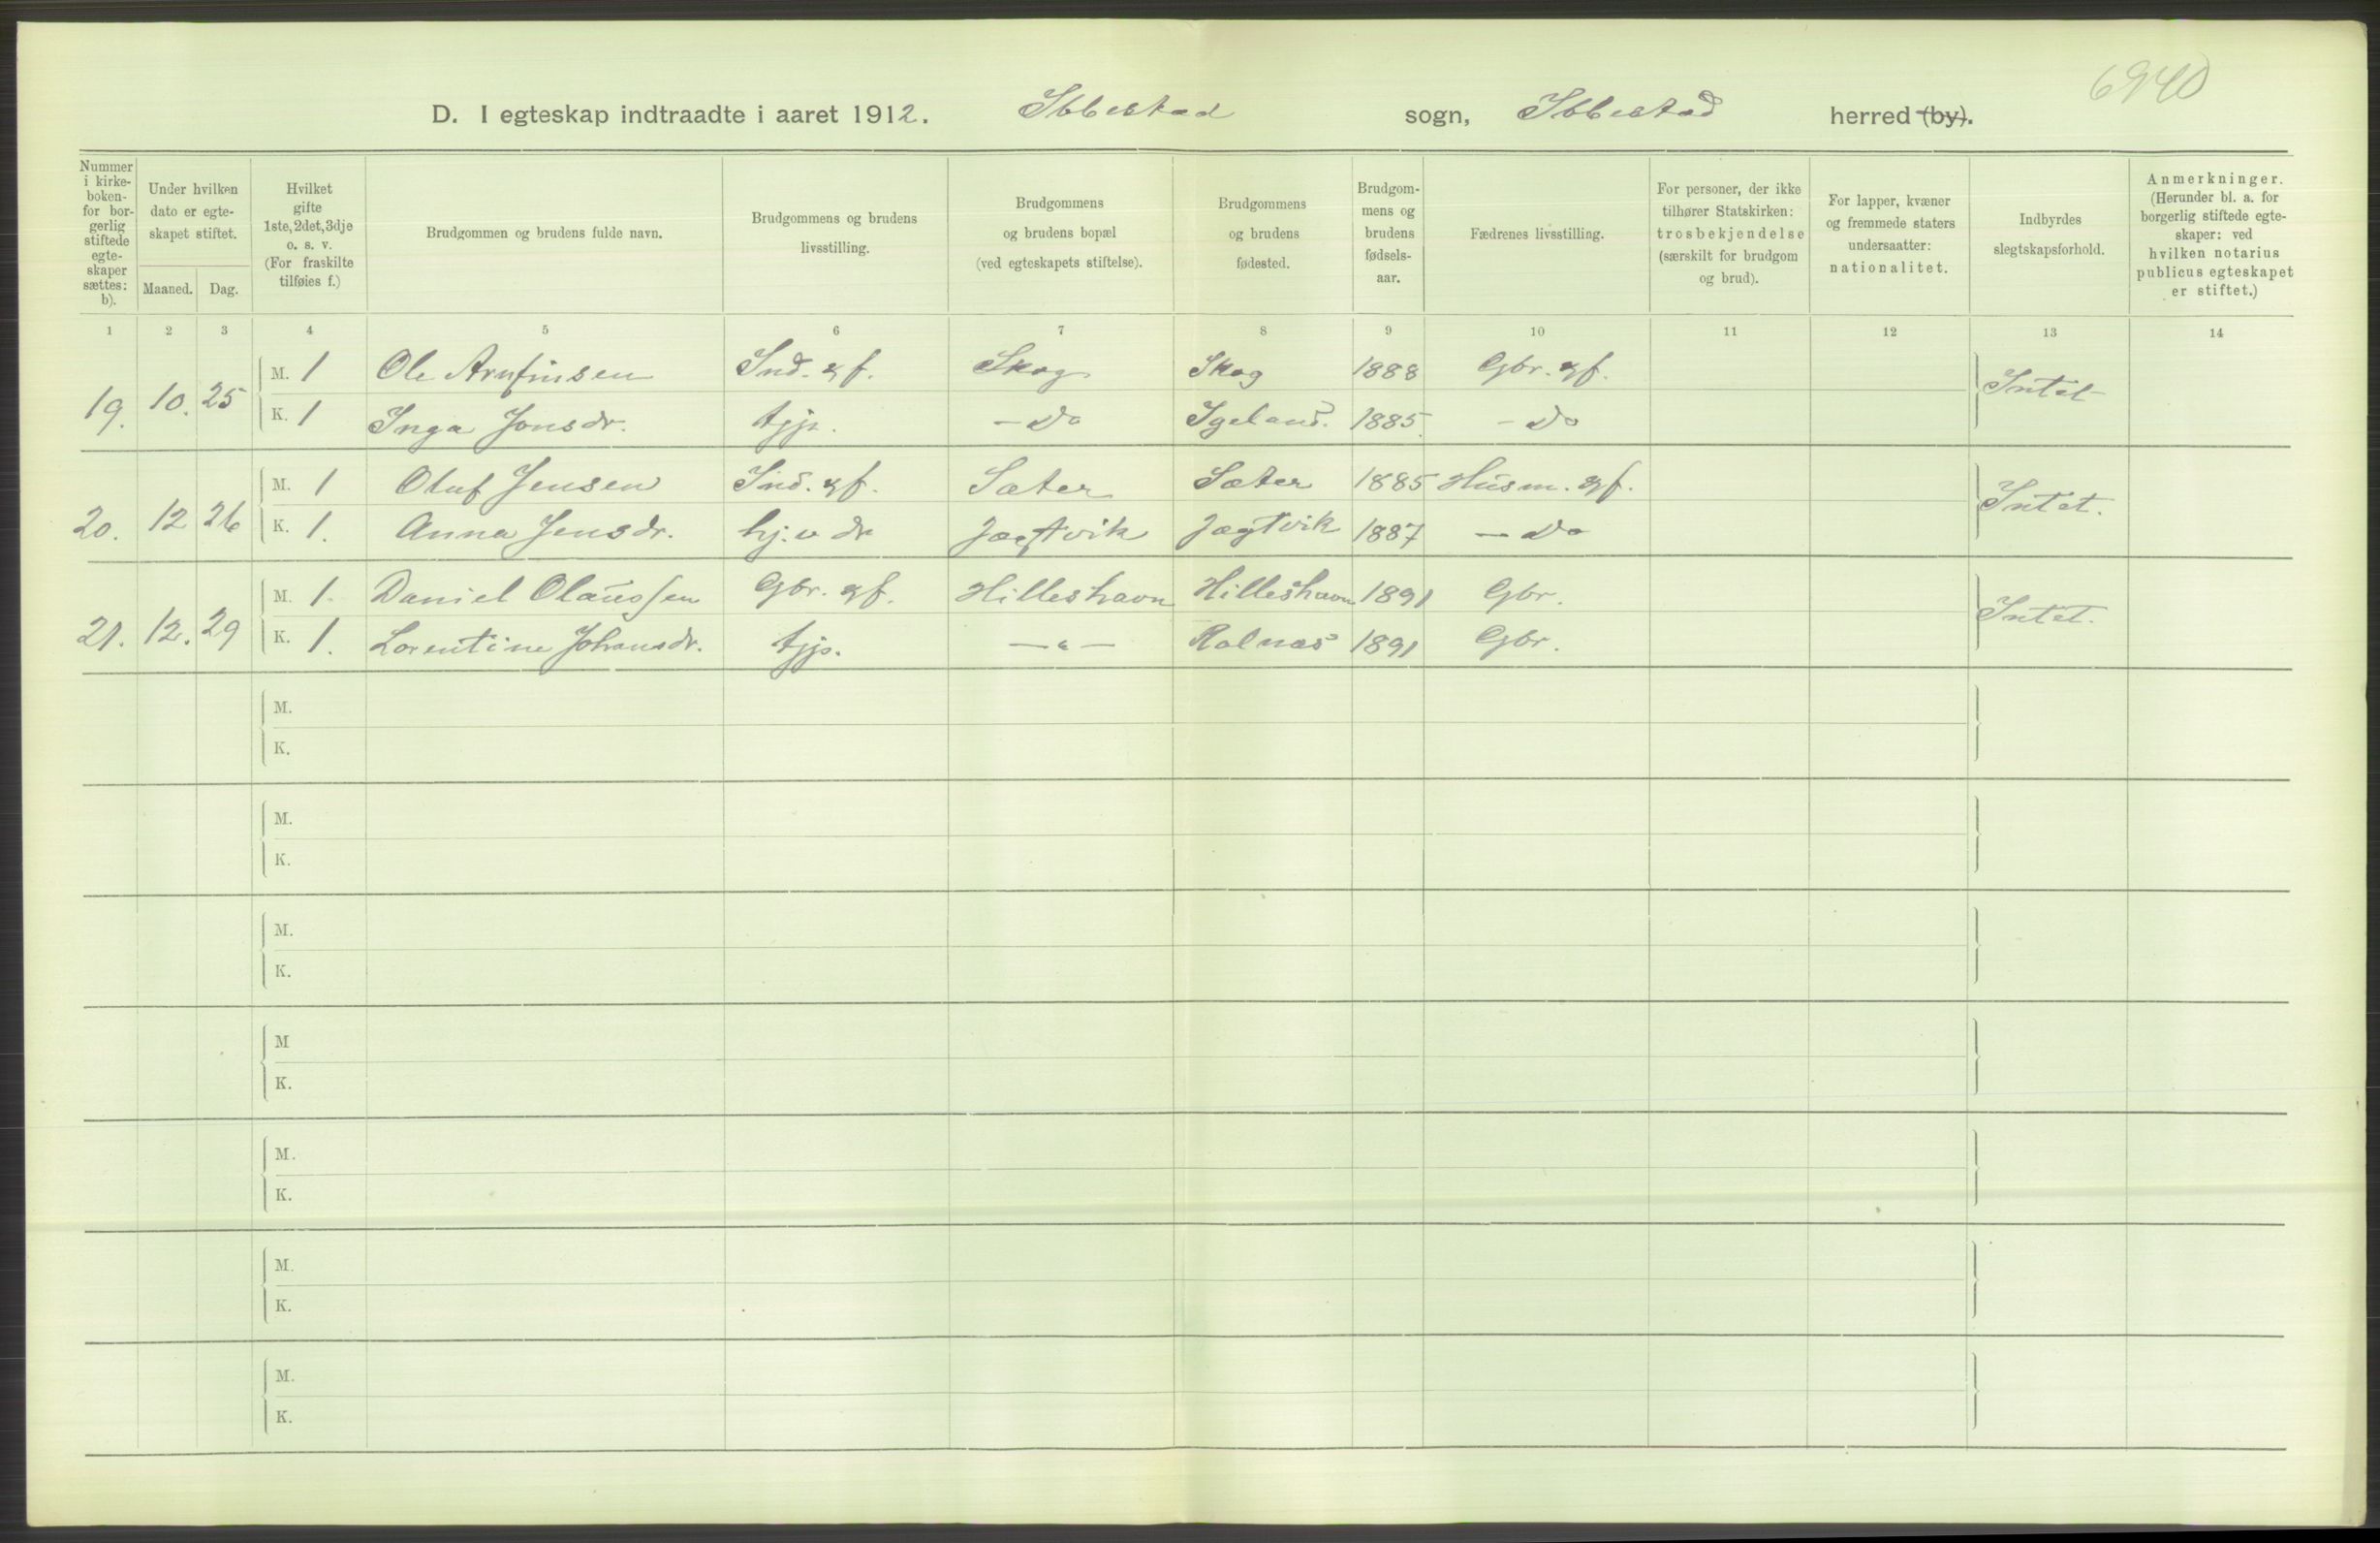 6940
D. I egteskap indtraadte i aaret 1912. Ibbestad sogn, Ibbestad herred (by).
Nummer i kirke- boken- for bor- gerlig stiftede egte- skaper sættes: b).
Under hvilken dato er egte- skapet stiftet.
Maaned. Dag.
Hvilket gifte 1ste, 2det, 3dje o. s. v. (For fraskilte tilføies f.)
Brudgommen og brudens fulde navn.
Brudgommens og brudens livsstilling.
Brudgommens og brudens bopæl (ved egteskapets stiftelse).
Brudgommens og brudens fødested.
Brudgom- mens og brudens fødsels- aar.
Fædrenes livsstilling.
For personer, der ikke tilhører Statskirken: trosbekjendelse (særskilt for brudgom og brud).
For lapper, kvæner og fremmede staters undersaatter: nationalitet.
Indbyrdes slegtskapsforhold.
Anmerkninger. (Herunder bl. a. for borgerlig stiftede egte- skaper: ved hvilken notarius publicus egteskapet er stiftet.)
1 2 3 4 5 6 7 8 9 10 11 12 13 14
19. 10. 25 M. 1 Ole Arnfinsen Ind. & f. Skog Skog 1888 Gbr. & f. Intet
K. 1 Inga Jonsdr. tjp. - Do Igeland. 1885. - Do
20. 12 26 M. 1 Oluf Jensen Ind. & f. Sæter Sæter 1885 Husm. & f. Intet.
K. 1. Anna Jensdr. hj. v dr Jægtvik Jægtvik 1887 - Do
21. 12. 29 M. 1. Daniel Olaussen Gbr. & f. Hilleshavn Hilleshavn 1891 Gbr. Intet.
K. 1. Lorentine Johansdr. tjp. - " - Rolnæs 1891 Gbr.
M.
K.
M.
K.
M.
K.
M
K.
M.
K.
M.
K.
M.
K.